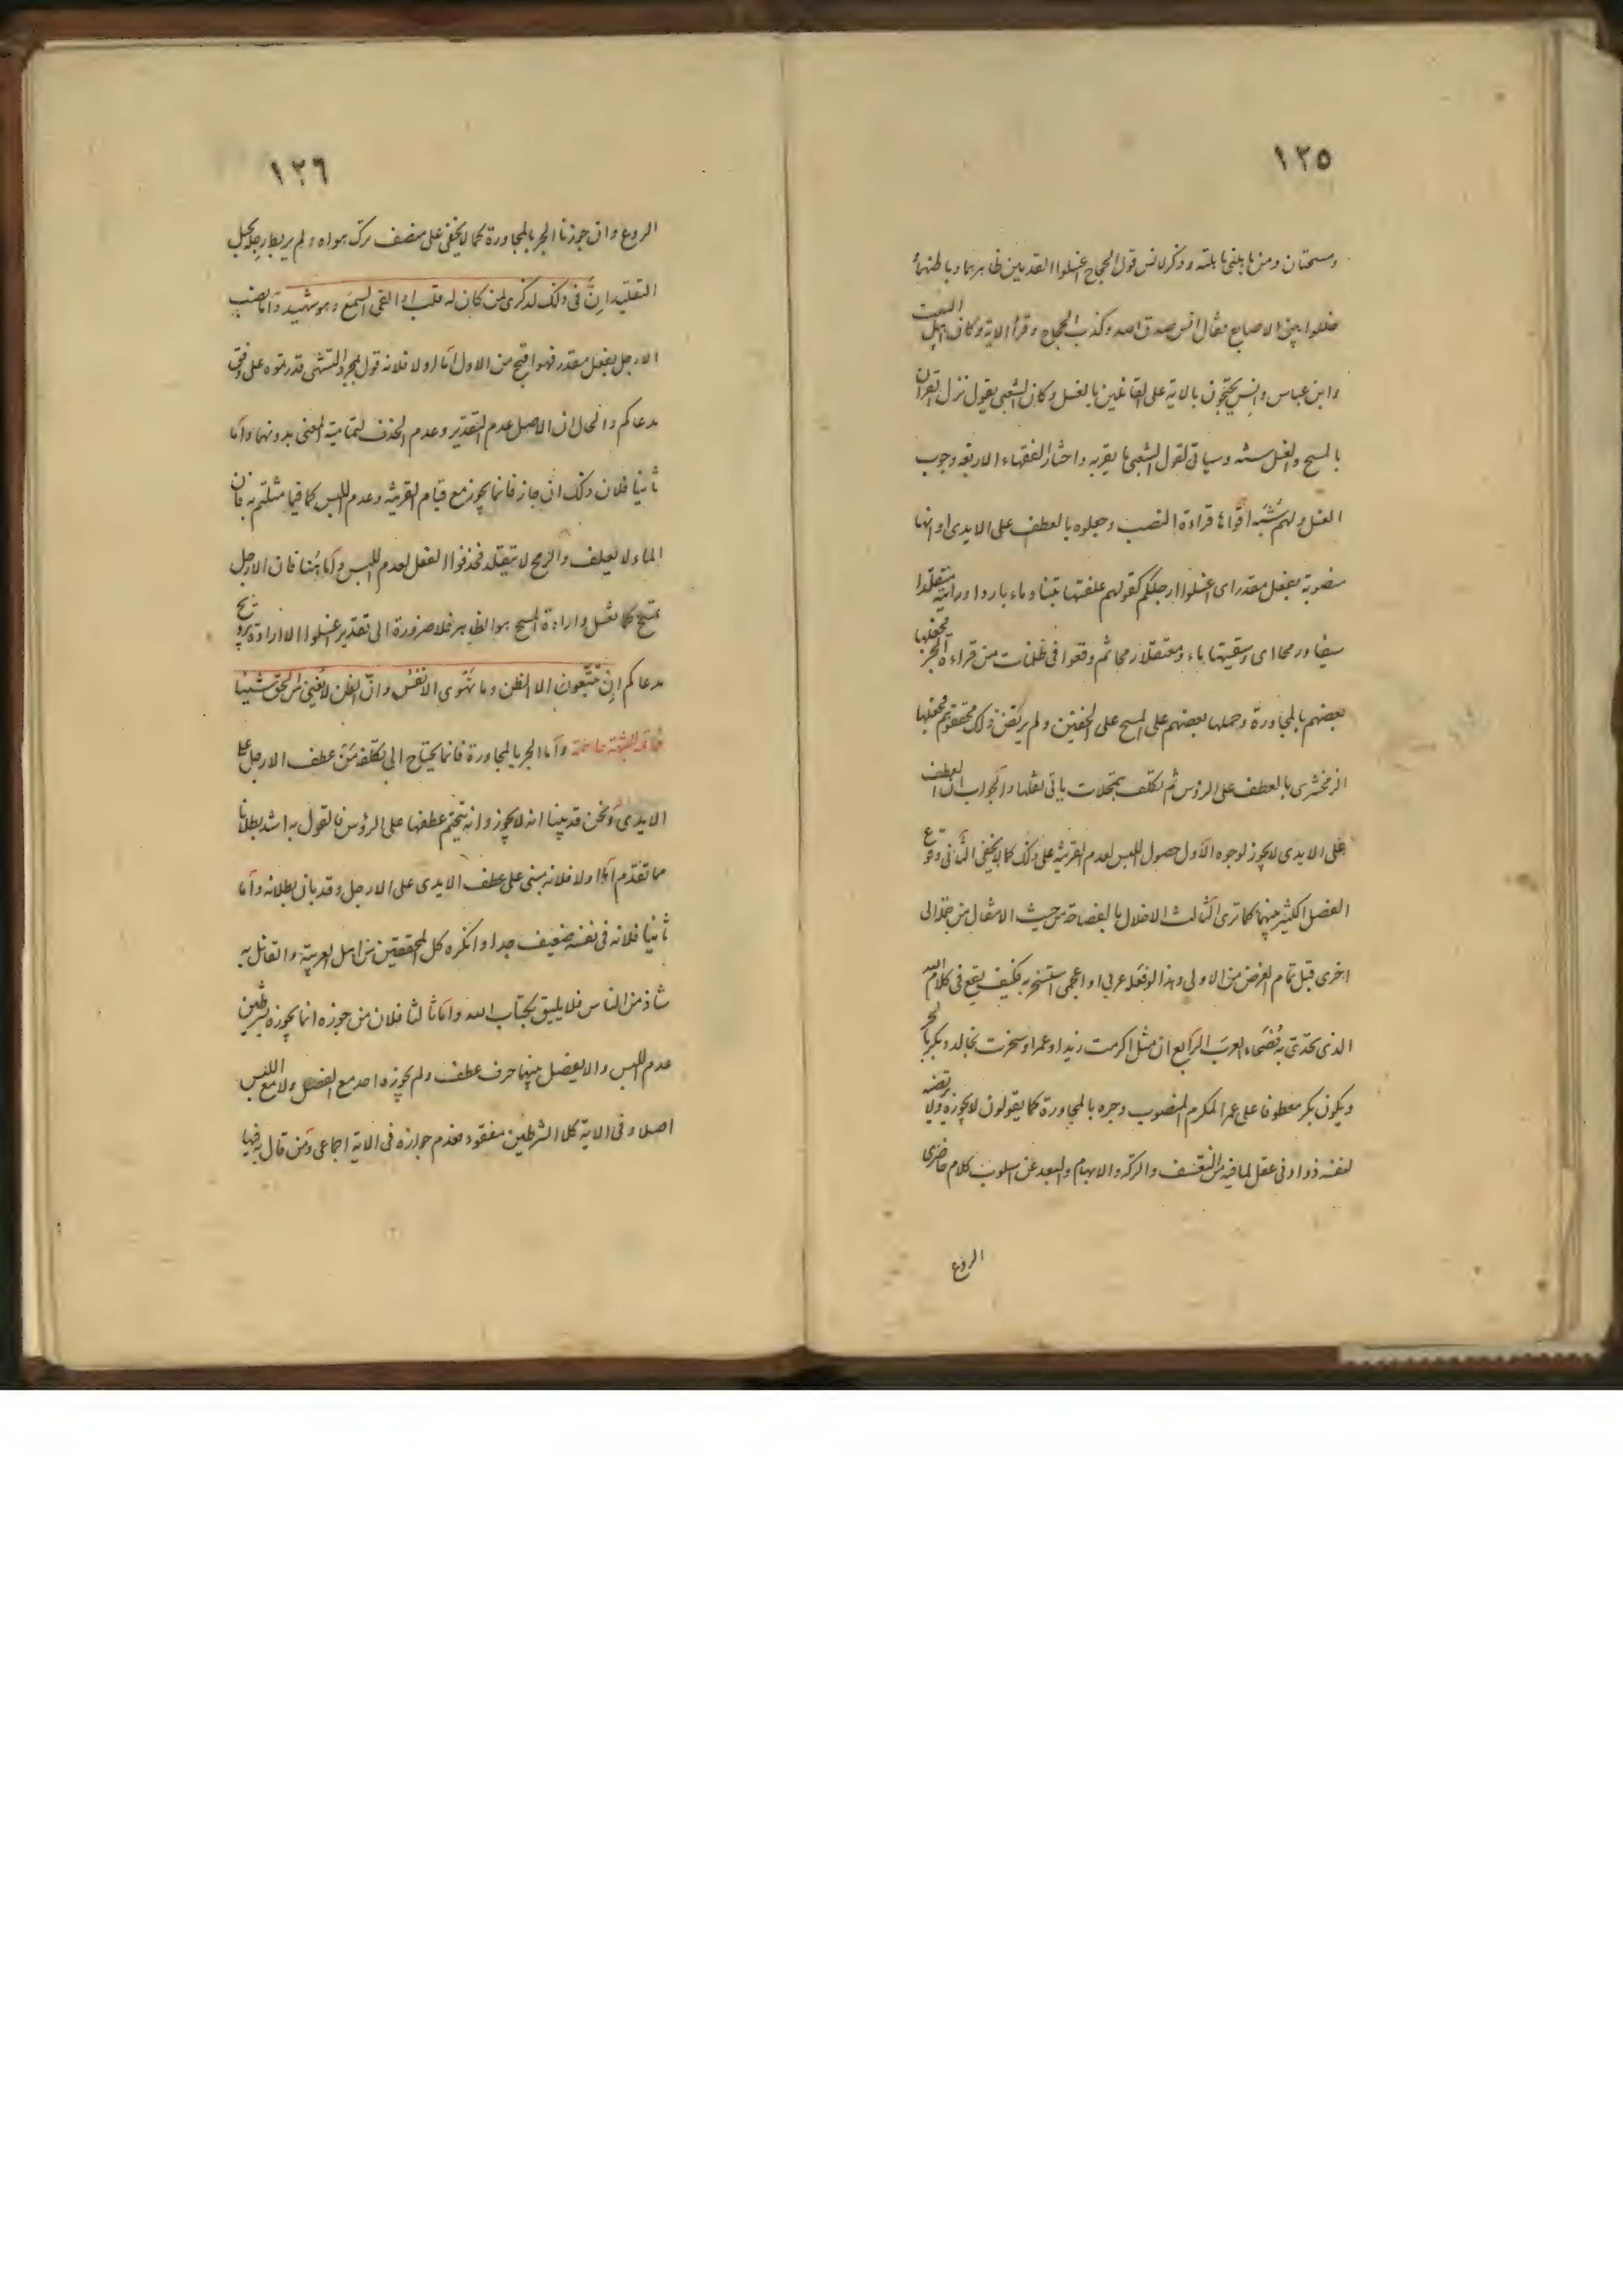 ١٢٥
ومسحتان ومن باهلنى باهلته وذكر لانس قول الحجاج اغسلوا القدمين ظاهرهما وباطنهما
خللوا بين الاصابع فقال انس صدق الله وكذب الحجاج وقرأ الاية وكان اهل البيت
وابن عباس وانس يحتجون بالاية على القائلين بالغسل وكان الشعبى يقول نزل القران
بالمسح والغسل سنه وسياتى لقول الشعبى ما يقربه واختار الفقهاء الاربعه وجوب
الغسل ولهم شبه اقواها قراءة النصب وجعلوه بالعطف على الايدى او انها
منصوبة بفعل مقدر اى اغسلوا ارجلكم كقولهم علفتها تبنا وماء باردا ورايته متقلدا
سيفا ورمحا اى وسقيتها ماء ومعتقلا رمحا ثم وقعوا فى ظلمات من قراءة الجر فجعلها
بعضهم بالمجاورة وحملها بعضهم على المسح على الخفين ولم يرتض ذلك محققوهم فجعلها
الزمخشرى بالعطف على الرؤس ثم تكلف بتمحلات ياتى نقلها والجواب ان العطف
على الايدى لا يجوز لوجوه الاول حصول اللبس لعدم القرينة على ذلك كما لا يخفى الثانى وقوع
الفصل الكثير بينهما كما ترى الثالث الاخلال بالفصاحة من حيث الانتقال من جملة الى
اخرى قبل تمام الغرض من الاولى وهذا لو فعله عربى او اعجمى استسخر به فكيف يقع فى كلام الله
الذى تحدى به فصحاء العرب الرابع ان مثل اكرمت زيدا وعمرا وسخرت بخالد وبكر بالجر
ويكون بكر معطوفا على عمر المكرم المنصوب وجره بالمجاورة كما يقولون لا يجوزه ولا يرتضيه
لنفسه ذو ادنى عقل لما فيه من التعسف والركة والابهام والبعد عن اسلوب كلام حاضرى
الروع
١٢٦
الروع وان جوزنا الجر بالمجاورة كما لا يخفى على منصف ترك هواه ولم يربط رجله بحبل
التقليد ان فى ذلك لذكرى لمن كان له قلب او القى السمع وهو شهيد واما نصب
الارجل بفعل مقدر فهو اقبح من الاول اما اولا فلانه قول بمجرد التشهى قدرتموه على وفق
مدعاكم والحال ان الاصل عدم التقدير وعدم الحذف لتمامية المعنى بدونهما واما
ثانيا فلان ذلك ان جاز فانما يجوز مع قيام القرينة وعدم اللبس كما فيما مثلتم به فان
الماء لا يعلف والرمح لا يتقلد فحذفوا الفعل لعدم اللبس واما هنا فان الارجل
تمسح كما تغسل وارادة المسح هو الظاهر فلا ضرورة الى تقدير اغسلوا الا ارادة ترويج
مدعاكم ان تتبعون الا الظن وما تهوى الانفس وان الظن لا يغنى من الحق شيئا
واما الجر بالمجاورة فانما يحتاج الى تكلفه من عطف الارجل على
الايدى ونحن قد بينا انه لا يجوز وانه يتحتم عطفها على الرؤس فالقول به اشد بطلانا
مما تقدم اما اولا فلانه مبنى على عطف الايدى على الارجل وقد بان بطلانه واما
ثانيا فلانه فى نفسه ضعيف جدا وانكره كل المحققين من اهل العربية والقائل به
شاذ من الناس فلا يليق بكتاب الله واما ثالثا فلان من جوزه انما يجوزه بشرطين
عدم اللبس والا يفصل بينهما حرف عطف ولم يجوزه احد مع الفصل ولا مع اللبس
اصلا وفى الاية كلا الشرطين مفقود فعدم جوازه فى الاية اجماعى ومن قال به فيها